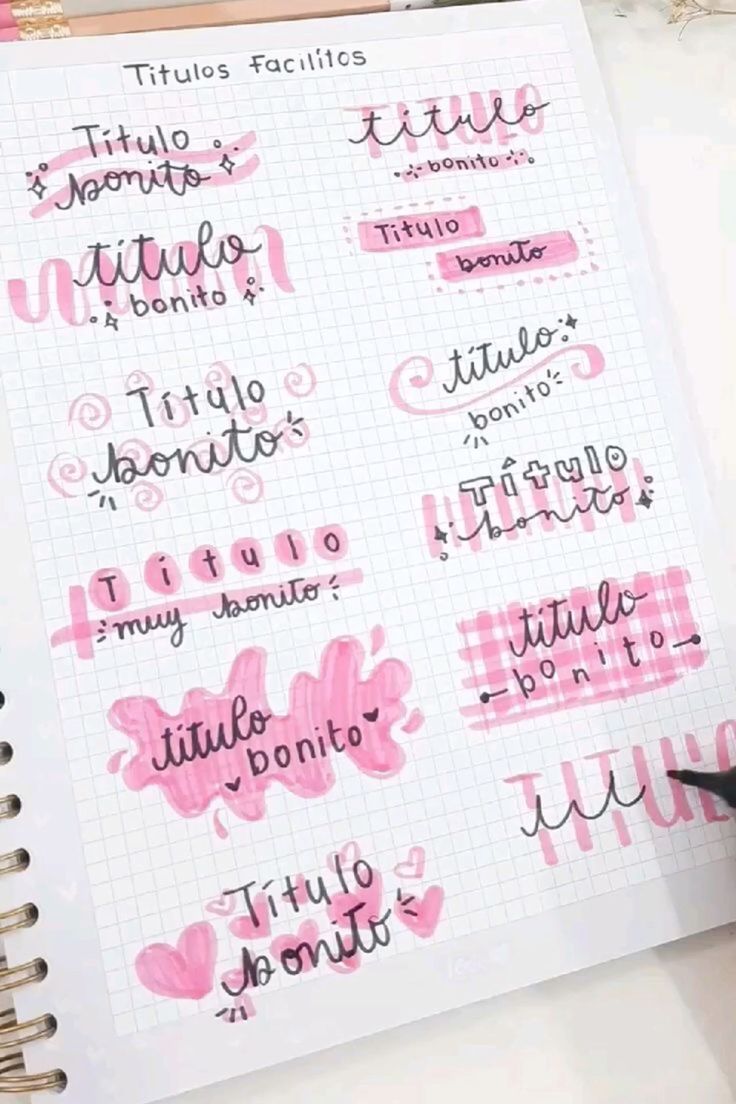 Titulos Facilítos
Título
bonito
título
bonito
Título
bonito
Título
muy bonito
título
bonito
Título
bonito
TITULO
título
bonito
Título
bonito
título
bonito
Título
bonito
título
bonito
TITULO